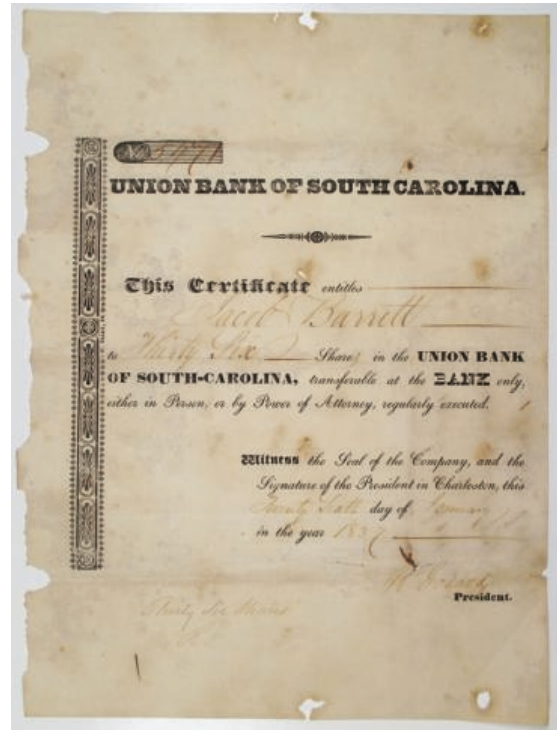 UNION BANK OF SOUTH CAROLINA.
This Certificate entitles
Jacob Barrett
to Thirty Six Shares in the UNION BANK
OF SOUTH-CAROLINA, transferable at the BANK only,
either in Person, or by Power of Attorney, regularly executed.
Witness the Seal of the Company, and the
Signature of the President in Charleston, this
Twenty Sixth day of January
in the year 183
President.
Thirty Six Shares